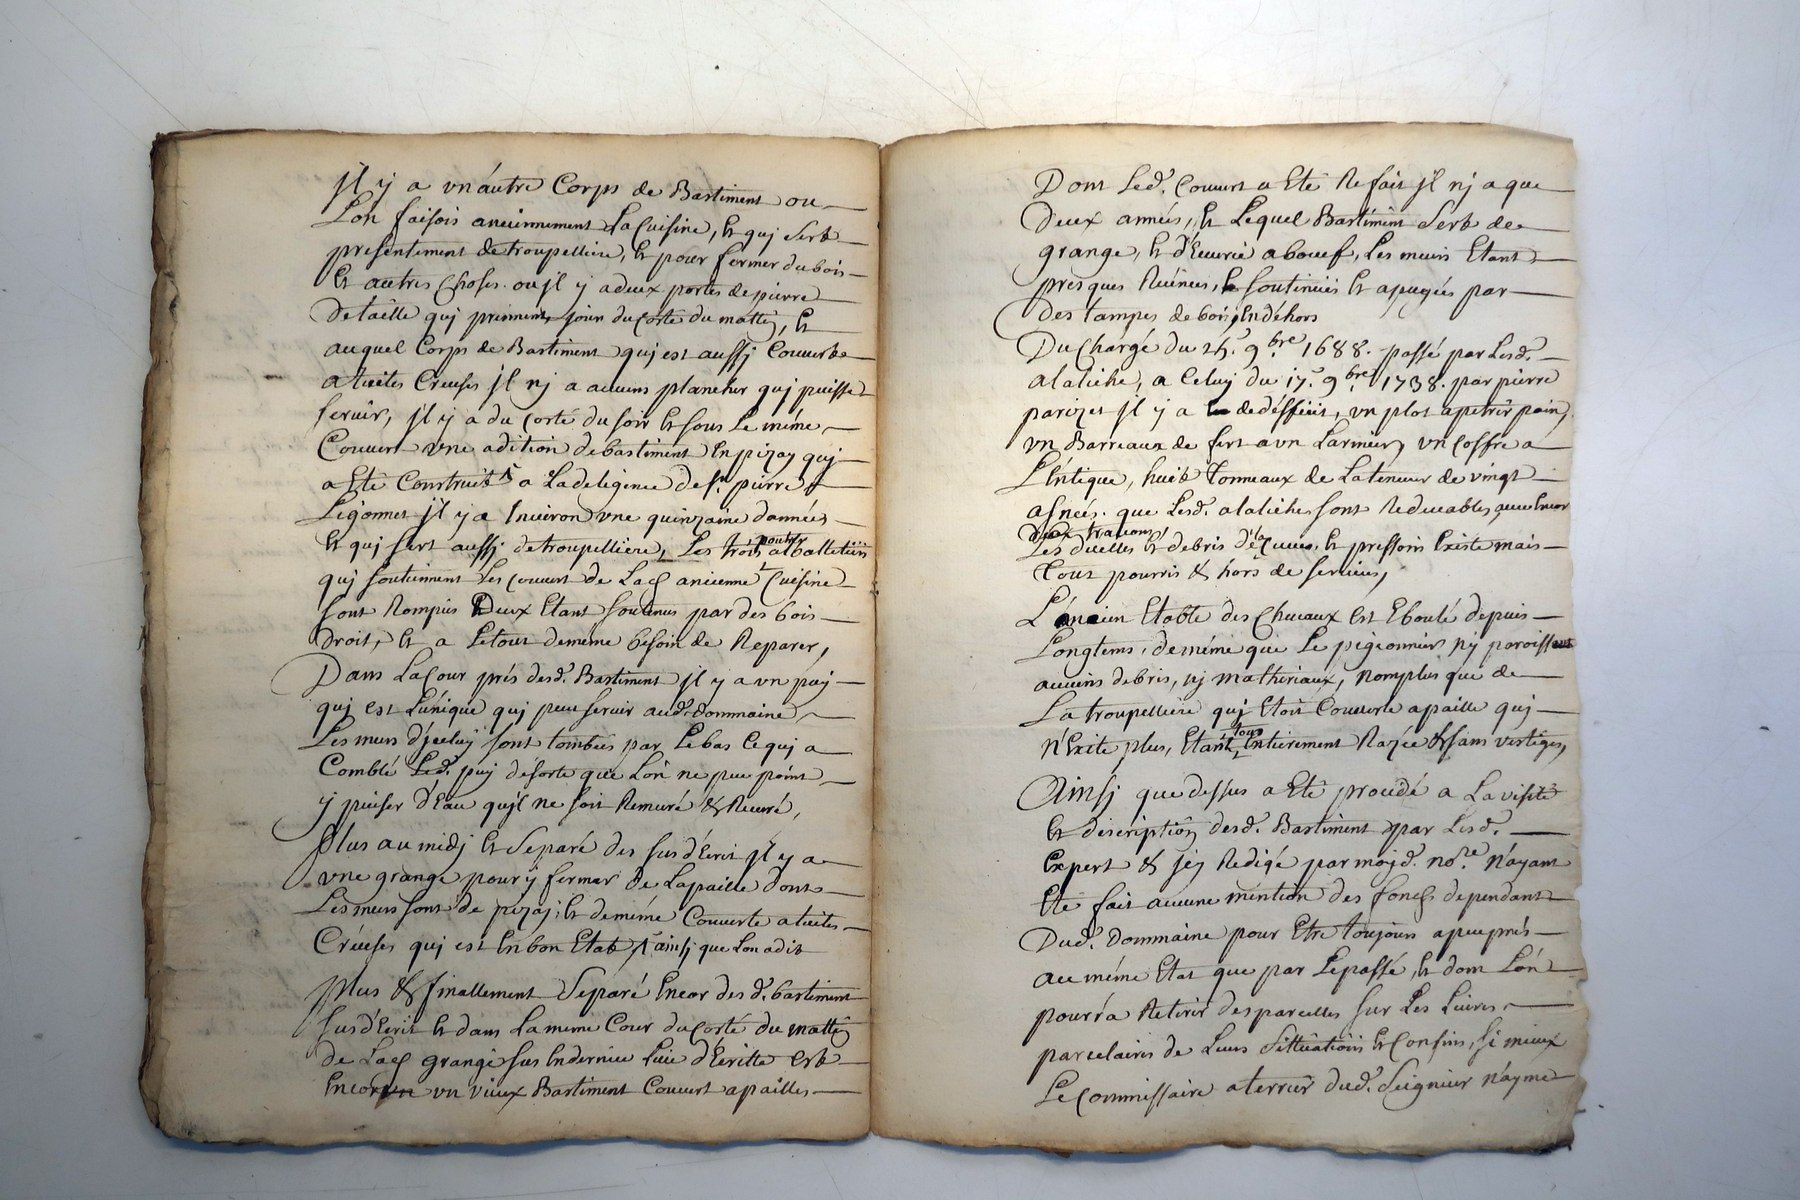 jl y a vn autre Corps de Bastiment ou
Lon faisois anciennement La Cuisine, et quj Sert
presentement de troupelliere, et pour fermer du bois
et autres choses. ou jl y a deux portes de pierre
de taille quj prennent jour du Corté du mattin, et
auquel Corps de Bastiment quj est aussj Couvert
a tuiles Creuses jl nj a aucuns plancher quj puisse
servir, jl y a du Corté du soir et sous Le même
Couvert vne adition de bastiment En pizay quj
a Eté Construit a La deligence de sr. pierre
Ligonnet jl y a Environ vne quinzaine dannées
et quj sert aussj de troupelliere, Les trois poutre
quj soutiennent Les Couvert de Lad. ancienne Cuisine
sont Rompus Deux Etant soutenus par des bois
droit, et a Le tout de meme besoin de Reparer,
Dans La Cour prés desd. Bastiment jl y a vn puy
quj est Lúnique quj peu servir aud. Dommaine
Les murs d'jceluy sont tombées par Le bas Ce quj a
Comblé Led. puy de sorte que Lon ne peu point
y puiser d'Eau qu'jl ne soit Remuré & Recuré,
Plus au midj et Separé des sus d'Ecrit jl y a
vne grange pour ÿ fermer de La paille dont
Les murs sont de pizaj, et de même Couverte a tuiles
Créuses quj est En bon Etat, ainsj que Lon a dit
Plus & finallement Separé Encor des d. bastiment
sus d'Ecrit et dans La meme Cour du Corté du mattin
de Lad. grange sus En derniee Lieu d'Ecritte est
Encor vn vieux Bastiment Couvert a pailles
Dont Led. Couvert a Eté Refait jl nj a que
deux années, et Lequel Bastiment Sert de
grange, et d'Ecurie a boeuf, Les murs Etant
presques Ruinées, soutenües et apuyées par
Des tampes de bois, En déhors
Du Chargé du 24e. 9bre 1688. passé par Lesd.
alaliche, a Celuy du 17e. 9bre 1738. par pierre
parizet jl y a de déffiat, vn plot a petrir pain,
vn Barreaux de fert a vn Larmier, vn Coffre a
L'éntique, huit Tonneaux de La teneur de vingt
asnées. que Lesd. alaliche sont Redevables, avec Encor
deux travons
Les duelles et debris d'Ecuves, et pressoir Existe mais
Tout pourris & hors de services,
L'áncien Etable des Chevaux est Eboulé depuis
Longtems, de même que Le pigeonnier nj paroissant
aucuns debris, nj matheriaux, nomplus que de
La troupelliere quj Etoit Couverte a paille quj
n'Exite plus, Etant tous Entierement Razée & sans vertiges,
Ainsj que dessus a Eté procédé a La visite
et description desd. Bastiment par Lesd.
Expert & jcy Redigé par moyd. nore. n'ayant
Eté fait aucune mention des fonds dependant
Dud. Dommaine pour Etre toujours a peu prés
au même Etat que par Le passé, et dont Lón
pourra Retirer des parcelles sur Les Livres
parcelaires de Leurs Sittuations et Confins, si mieux
Le Commissaire a terrier dud. Seigneur n'ayme